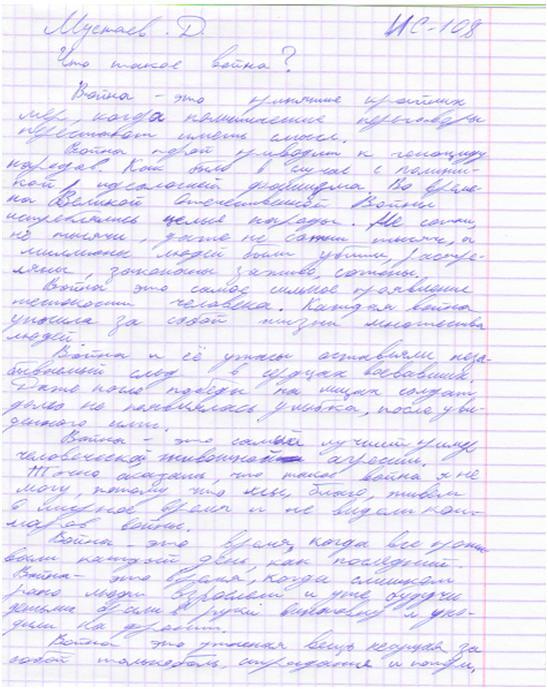 Мустаев. Д.
ИС-108
Что такое война?
Война - это принятие крайних
мер, когда политические переговоры
перестают иметь смысл.
Война порой приводит к геноциду
народов. Как было в случае с полити-
кой, идеологией фашизма. Во време-
на Великой Отечественной Войны
истреблялись целые народы. Не сотни,
не тысячи, даже не сотни тысяч, а
миллионы людей были убиты, расстре-
ляны, закопаны заживо, сожжены.
Война это самое сильное проявление
жестокости человека. Каждая война
уносила за собой жизни множества
людей.
Война и её ужасы оставляли неза-
бываемый след в сердцах воевавших.
Даже после победы на лицах солдат
долго не появлялась улыбка, после уви-
денного ими.
Война - это самый лучший пример
человеческой, животной агрессии.
Точно сказать, что такое война я не
могу, потому что мы, благо, живём
в мирное время и не видели кош-
маров войны.
Война - это время, когда все прожи
вали каждый день, как последний.
Война - это время, когда слишком
рано люди взрослели и уже будучи
детьми брали в руки винтовку и ухо-
дили на фронт.
Война это ужасная вещь несущая за
собой только боль, страдания и потери.